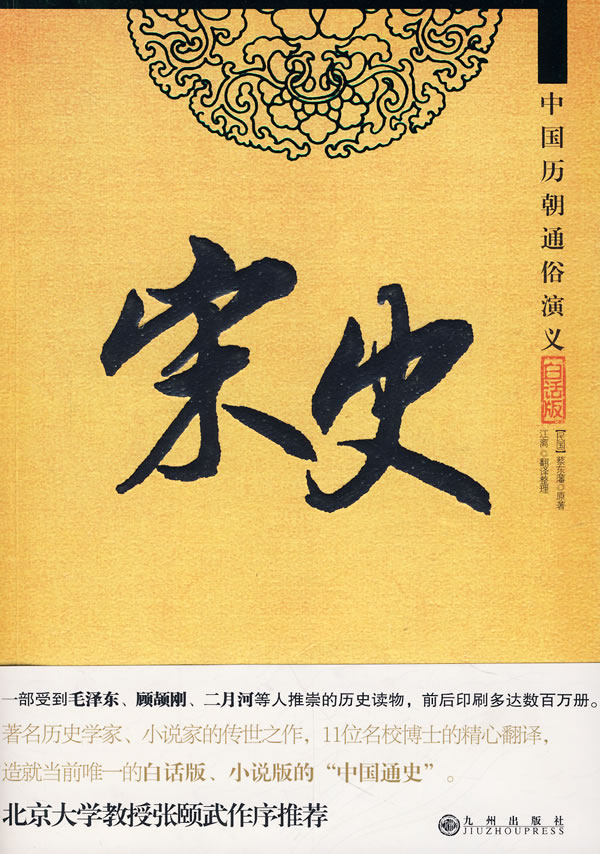 中国历朝通俗演义
白话版
[民国]蔡东藩◎原著
江漓◎翻译整理
宋史
一部受到毛泽东、顾颉刚、二月河等人推崇的历史读物，前后印刷多达数百万册。
著名历史学家、小说家的传世之作，11位名校博士的精心翻译，
造就当前唯一的白话版、小说版的“中国通史”。
北京大学教授张颐武作序推荐
九州出版社
JIUZHOUPRESS